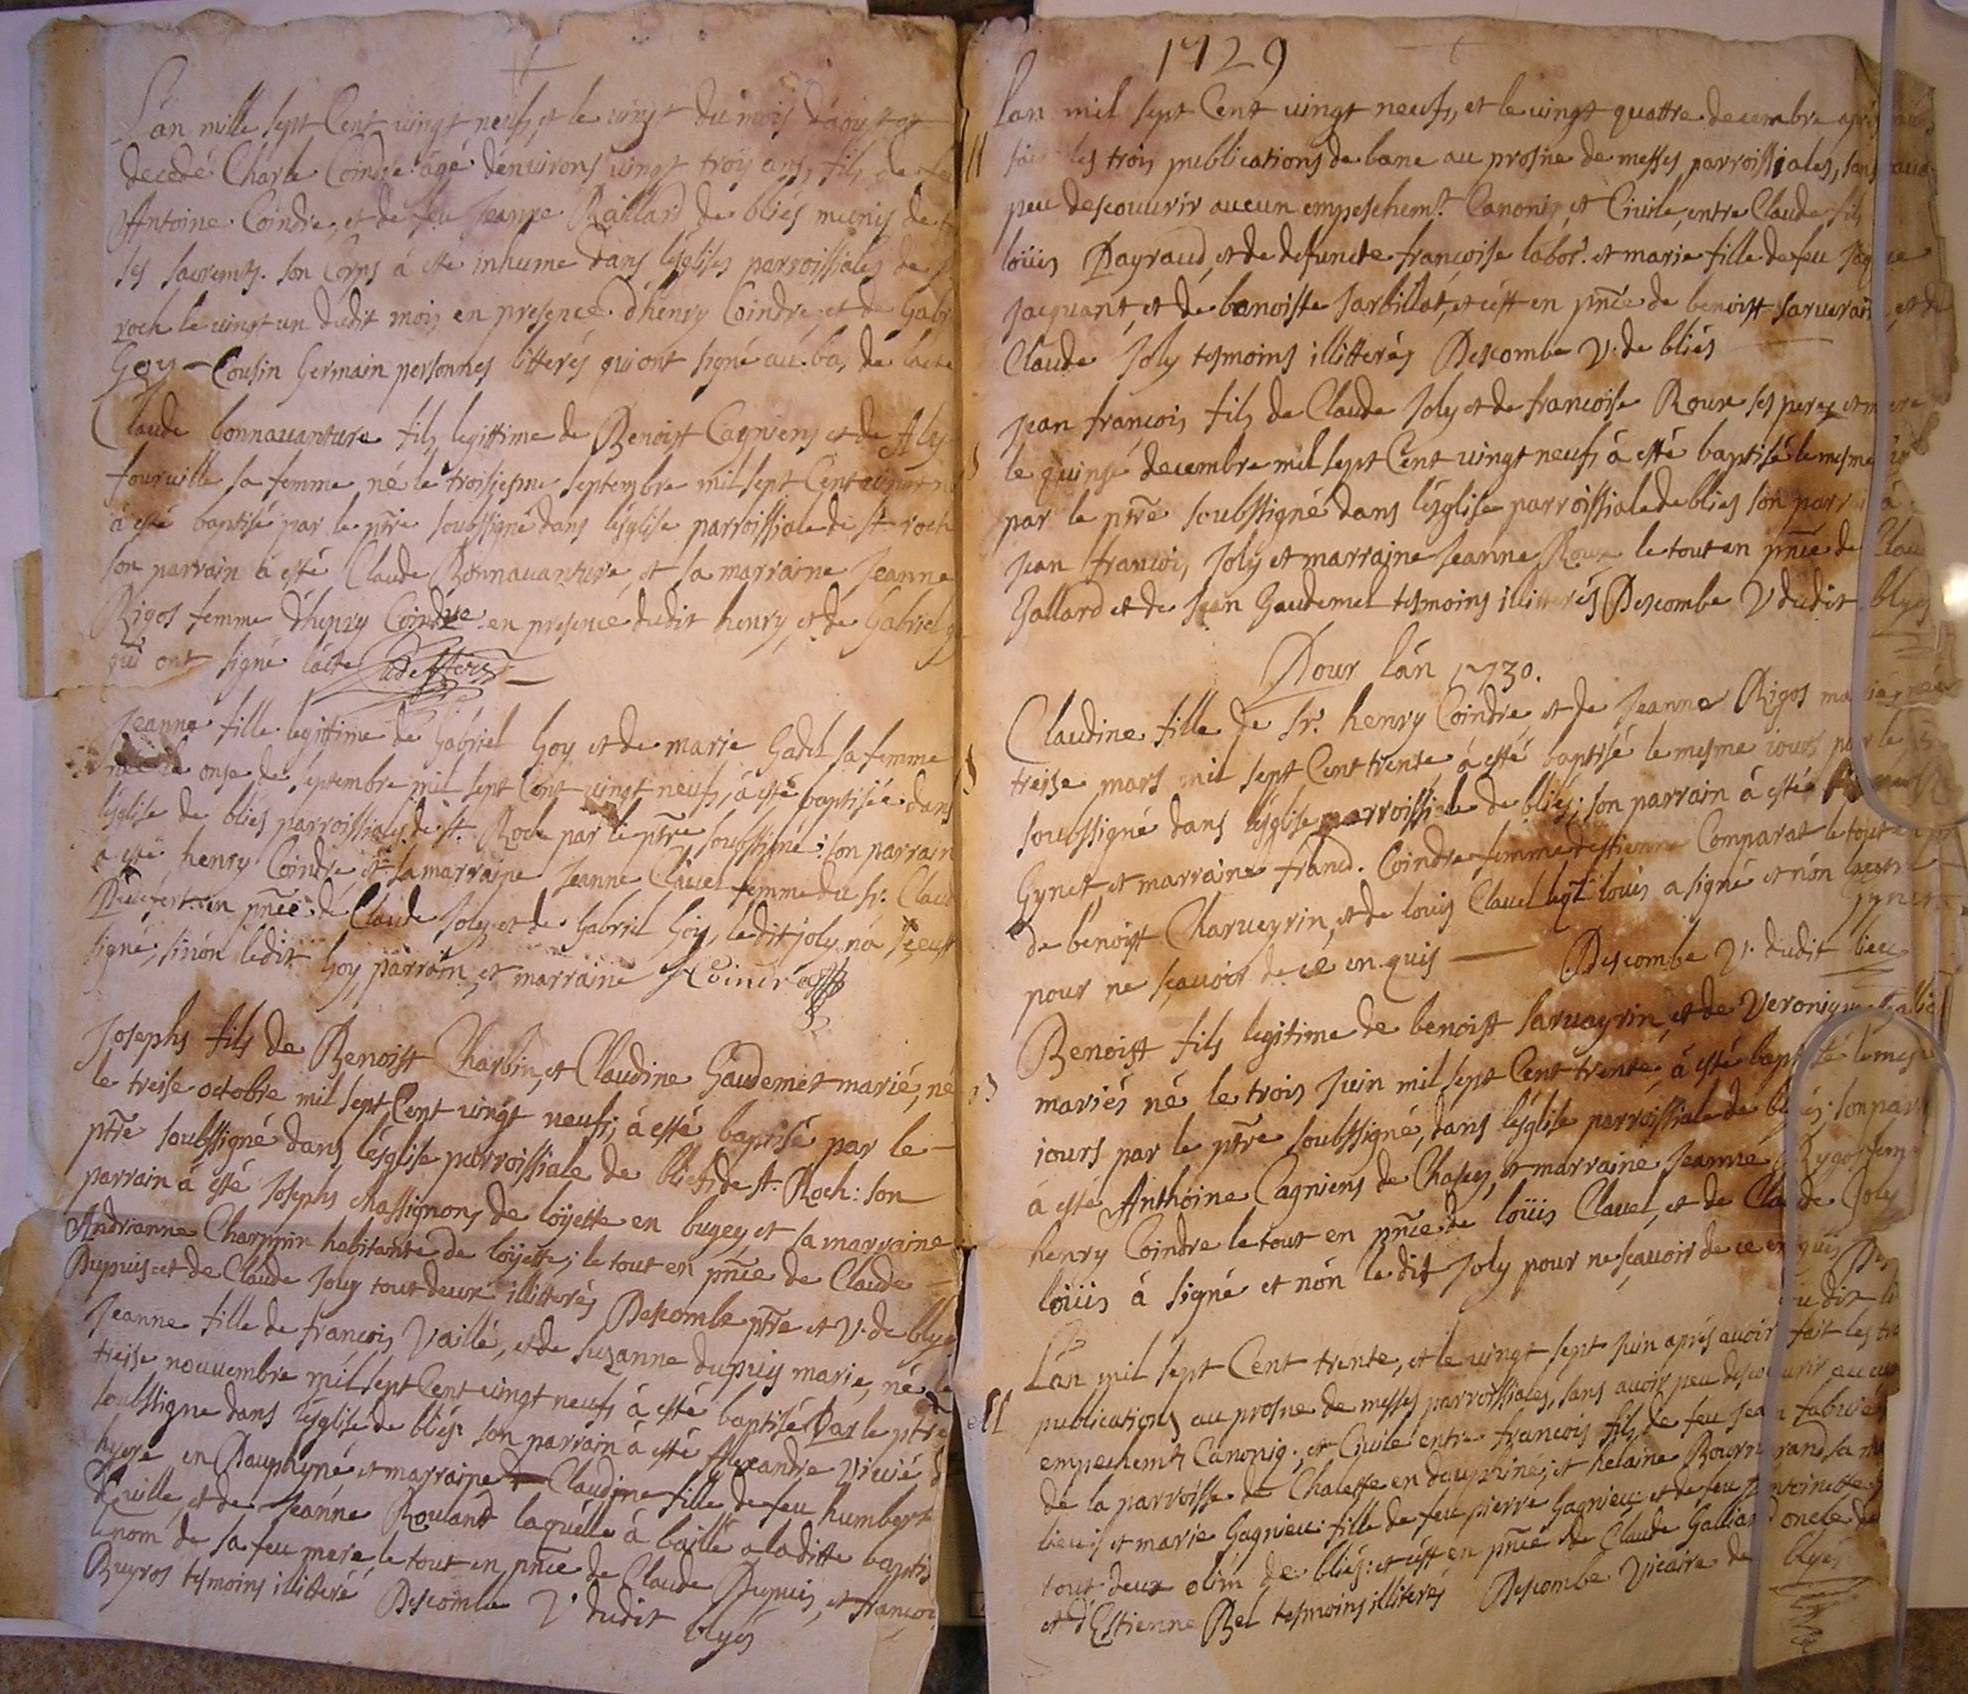 Lan mille sept Cent vingt neufs et le vingt du mois daoust
decedé Charle Coindre âgé denvirons vingt trois ans, fils de
Anthoine Coindre, et de feu Jeanne Raillard de bliés munis de
ses sacremts. son Corps à este inhume dans lesglises parroissiales de
roch le vingt un dudit mois en presence d'henry Coindre et de Gabr
Goy - Cousin Germain personnes litterés qui ont signé au bas de lacte
Claude bonnavanture fils legittime de Benoist Cagniens et de
fourville sa femme né le troisiesme septembre mil sept Cent vingt
à esté baptisé par le ptre soubssigné dans lesglise parroissiale de st roch
son parrain à esté Claude Bonnavanture et sa marraine Jeanne
Rigos femme d'henry Coindre en presence dudit henry, et de Gabriel
qui ont signé lacte
Jeanne fille legittime de Gabriel Goy et de marie Gadel sa femme
née le onse de septembre mil sept Cent vingt neufs, à esté baptisée dans
lesglise de bliés parroissiales de st. Roch par le ptre soubssigné: son parrain
a esté henry Coindre et sa marraine Jeanne Clavel femme du sr. Claud
en pnce de Claude Joly et de Gabriel Goy, ledit joly na sceust
signé, sinón ledit Goy, parrain et marraine HCoindre
Josephs fils de Benoist Charbin, et Claudine Gaudemet marié, né
le treise octobre mil sept Cent vingt neufs; à esté baptisé par le -
ptre soubssigné dans lésglise parroissiale de bliets de st. Roch: son
parrain à esté Josephs chassignons de loÿette en bugey et sa marraine
Andrianne Charpin habitante de loÿette; le tout en pnce de Claude
Dupuis et de Claude Joly tout deux illitterés Descombe ptre et V. de blye
Jeanne fille de francois Vaillé, et de suzanne dupuis marie, né le
treise nouvembre mil sept Cent vingt neufs à esté baptisé Par le ptre
soubssigne dans lésglise de bliés: son parrain à esté Alexandre
hyere en Dauphyné et marraine Claudine fille de feu humbert
d'euille, et de Jeanne Rouland laquelle à baillé a laditte baptis
le nom de sa feu mere le tout en pnce de Claude Dupuis, et francoi
Beyros tesmoins illitteré Descombe V. dudit
blyés
1729
Lan mil sept Cent vingt neufs, et le vingt quattre decembre aprés
les trois publications de banc au prosne de messes parroissiales, sans
peu descouvrir aucun empeschemt. Canoniq et Civile, entre Claude fils
loüis Payraud, et de defuncte francoise labor. et marie fille de feu
Jacquant, et de banoiste Jarbillat, et cést en pnce de benoist sarverain et de
Claude Joly tesmoins illitterés Descombe V. de bliés
Jean francois fils de Claude Joly et de francoise Roux ses perez et mere
le quinse decembre mil sept Cent vingt neufs à esté baptisé le mesme
par le ptre soubssigné dans lésglise parroissiale de blies son parrai à
Jean francois Joly et marraine Jeanne Roux le tout en pnce de Clau
Gallard et de Jean Gaudemet tesmoins illitterés Descombe V dudit blyés
Pour lán 1730.
Claudine fille de sr. henry Coindre et de Jeanne Rigos mariés née
treise mars mil sept Cent trente à esté baptisé le mesme iours par le
soubssigné dans lésglise parroissiale de bliés; son parrain à esté
Gynet, et marraine francs. Coindre femme d'estienne Comparat le tout en pn
de benoist Charveyrin, et de louis Clavel leqt louis a signé et nón
pour ne sçavoir de ce en quis — Gynet
Descombe V. dudit lieu
Benoist fils legitime de benoist sarvayrin, et de Veronique
mariés né le trois Juin mil sept Cent trente; à esté baptisté le mes
iours par le ptre soubssigné, dans lésglise parroissiale de bliés; son par
à esté Anthoine Cagniens de Chasey, et marraine Jeanne Rygos fem
henry Coindre le tout en pnce de loüis Clavel, et de Claude Joly
loüis à signé et nón le dit Joly pour ne sçavoir de ce en quis Des
dudit li
Lan mil sept Cent trente, et le vingt sept Juin aprés avoir fait les tro
publications au prosne de messes parroissiales, sans avoir peu descouvrir aucun
empechemts Canoniq; et Civile entre francois fils de feu Jean fabvie
de la parroisse de Chalette en dauphine; et helaine Bourn
et marie Gagnieu fille de feu pierre Gagnieu; et de feu Anthoinette
tout deux olim de bliés: et cést en pnce de Claude Galliard oncle de
et d'Estienne Bel tesmoins illiterés Descombe Vicaire de blyés